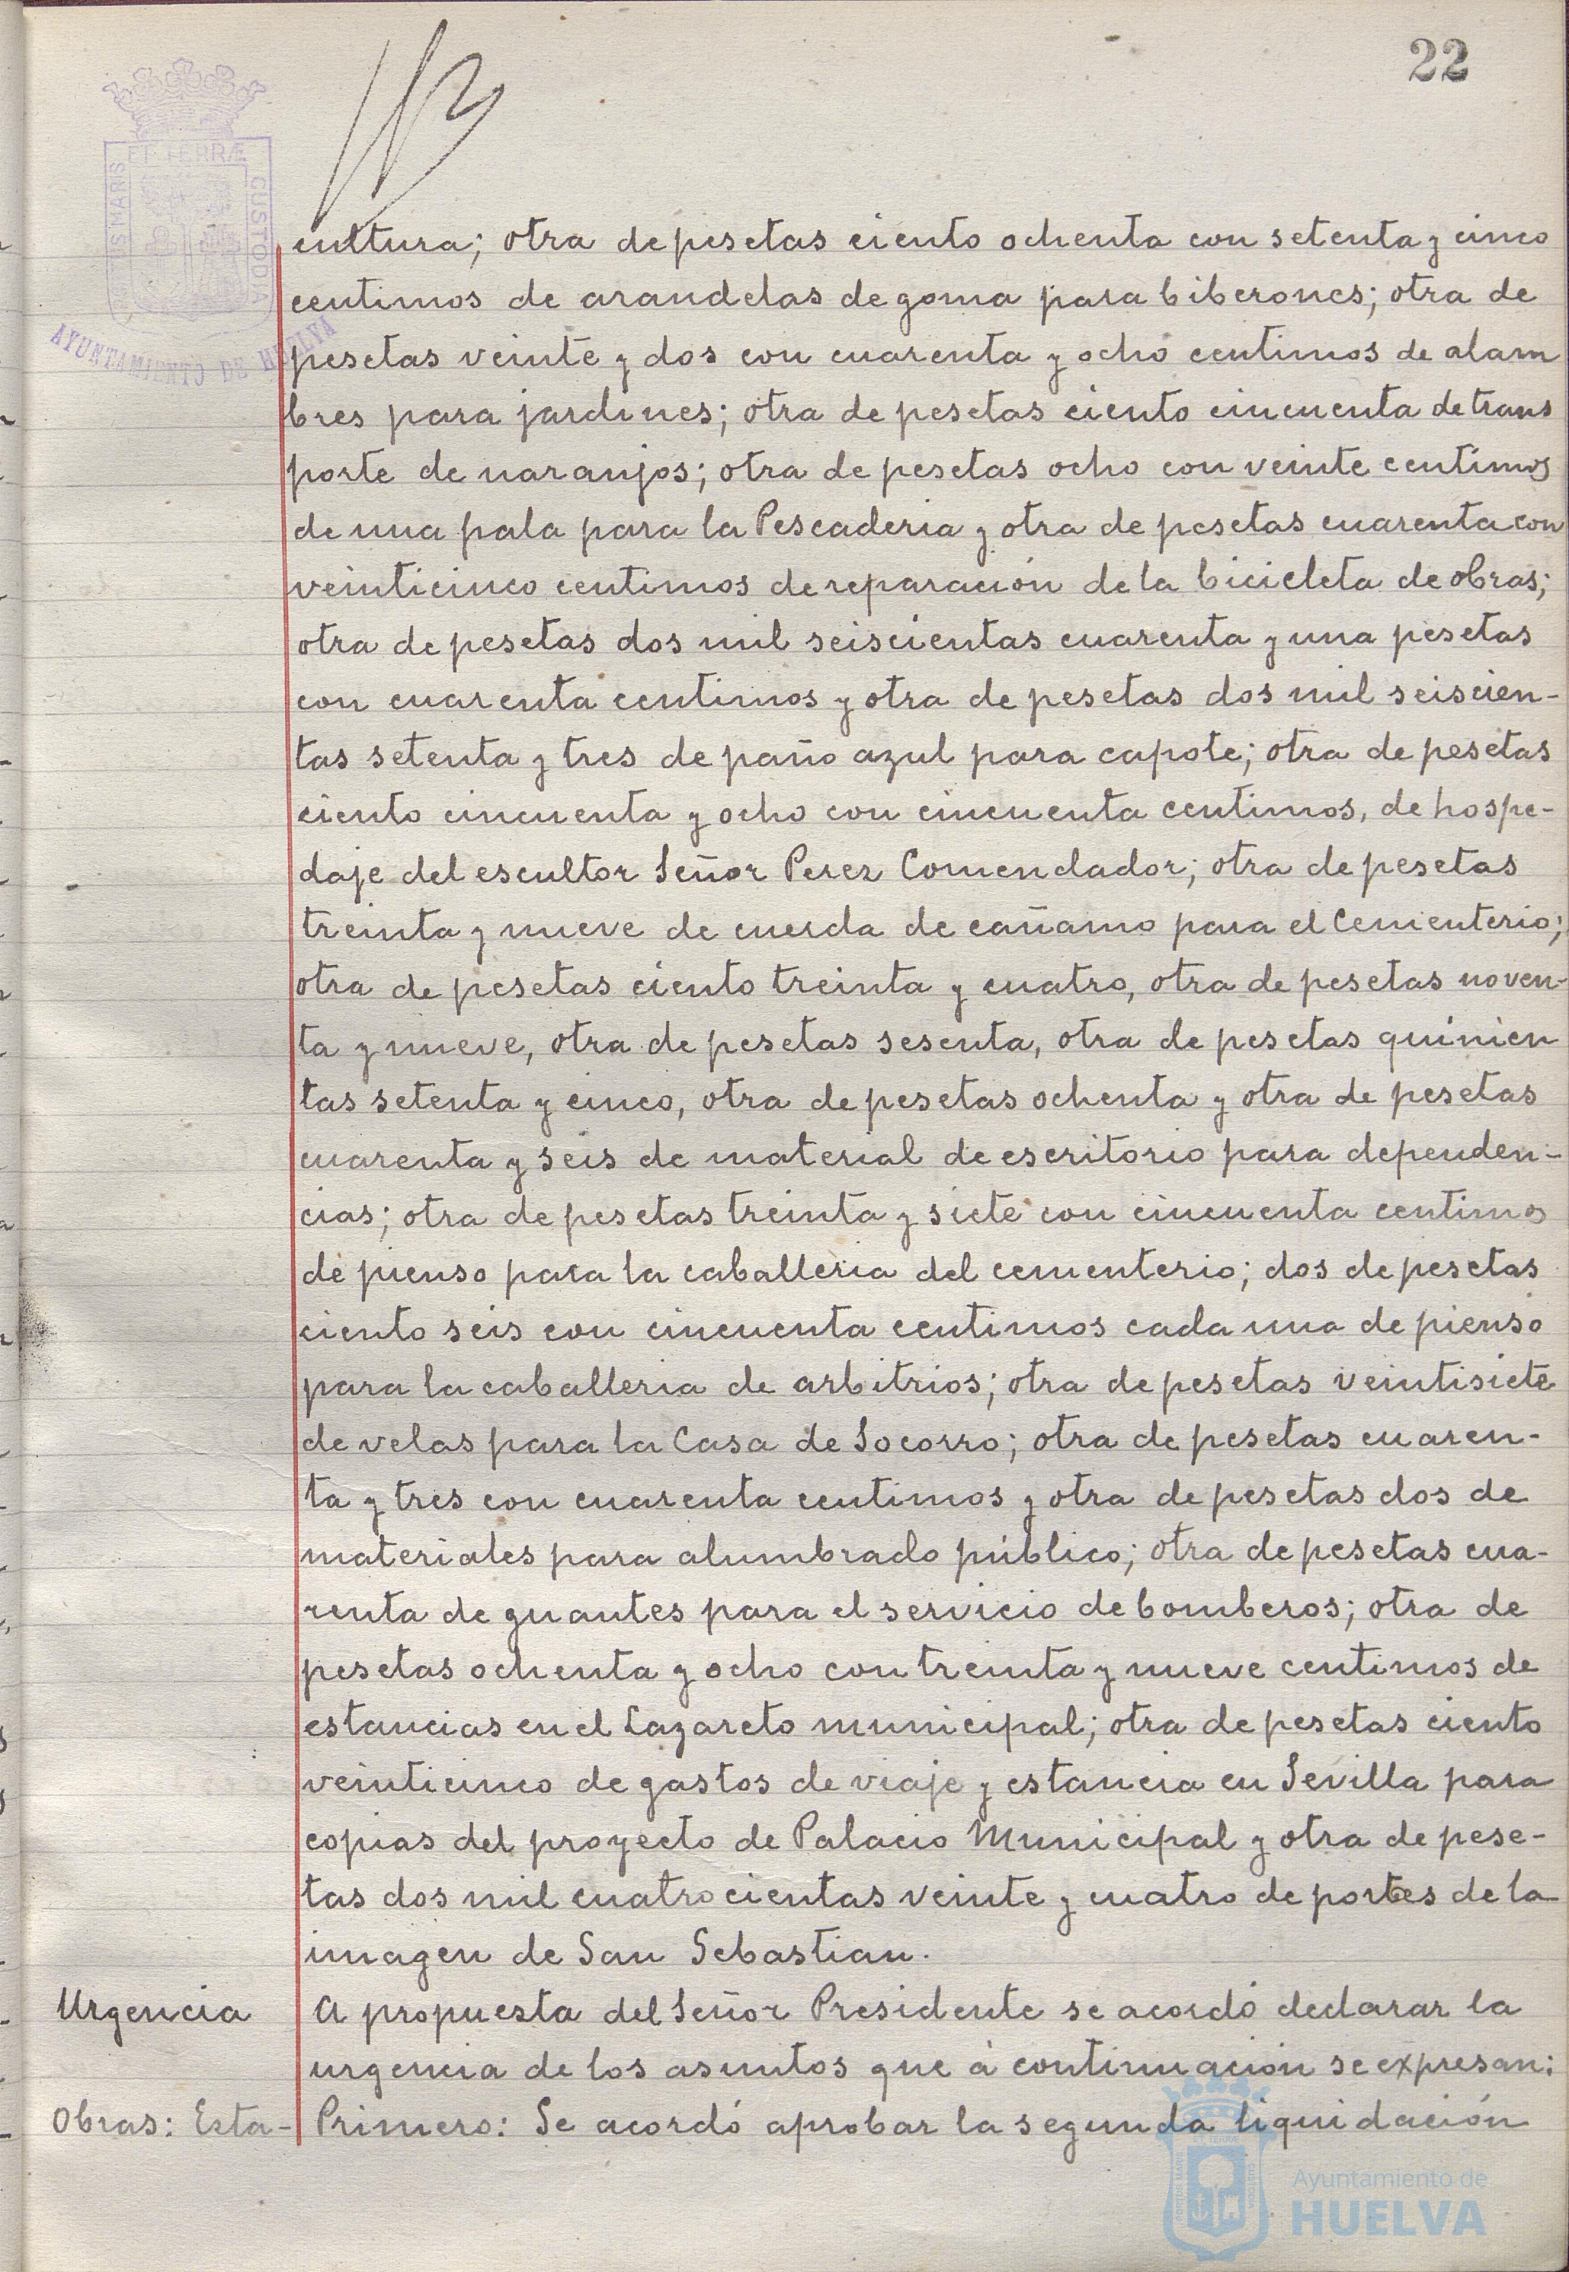 22
ET TERRÆ
PORTUS MARIS
CUSTODIA
AYUNTAMIENTO DE HUELVA
cultura; otra de pesetas ciento ochenta con setenta y cinco
centimos de arandelas de goma para biberones; otra de
pesetas veinte y dos con cuarenta y ocho centimos de alam
bres para jardines; otra de pesetas ciento cincuenta de trans
porte de naranjos; otra de pesetas ocho con veinte centimos
de una pala para la Pescaderia y otra de pesetas cuarenta con
veinticinco centimos de reparación de la bicicleta de obras;
otra de pesetas dos mil seiscientas cuarenta y una pesetas
con cuarenta centimos y otra de pesetas dos mil seiscien-
tas setenta y tres de paño azul para capote; otra de pesetas
ciento cincuenta y ocho con cincuenta centimos, de hospe-
daje del escultor Señor Perez Comendador; otra de pesetas
treinta y nueve de cuerda de cañamo para el Cementerio;
otra de pesetas ciento treinta y cuatro, otra de pesetas noven-
ta y nueve, otra de pesetas sesenta, otra de pesetas quinien
tas setenta y cinco, otra de pesetas ochenta y otra de pesetas
cuarenta y seis de material de escritorio para dependen-
cias; otra de pesetas treinta y siete con cincuenta centimos
de pienso para la caballeria del cementerio; dos de pesetas
ciento seis con cincuenta centimos cada una de pienso
para la caballeria de arbitrios; otra de pesetas veintisiete
de velas para la Casa de Socorro; otra de pesetas cuaren-
ta y tres con cuarenta centimos y otra de pesetas dos de
materiales para alumbrado público; otra de pesetas cua-
renta de guantes para el servicio de bomberos; otra de
pesetas ochenta y ocho con treinta y nueve centimos de
estancias en el Lazareto municipal; otra de pesetas ciento
veinticinco de gastos de viaje y estancia en Sevilla para
copias del proyecto de Palacio Municipal y otra de pese-
tas dos mil cuatrocientas veinte y cuatro de portes de la
imagen de San Sebastian.
Urgencia A propuesta del Señor Presidente se acordó declarar la
urgencia de los asuntos que á continuación se expresan:
Obras: Esta- Primero: Se acordó aprobar la segunda liquidación
Ayuntamiento de
HUELVA